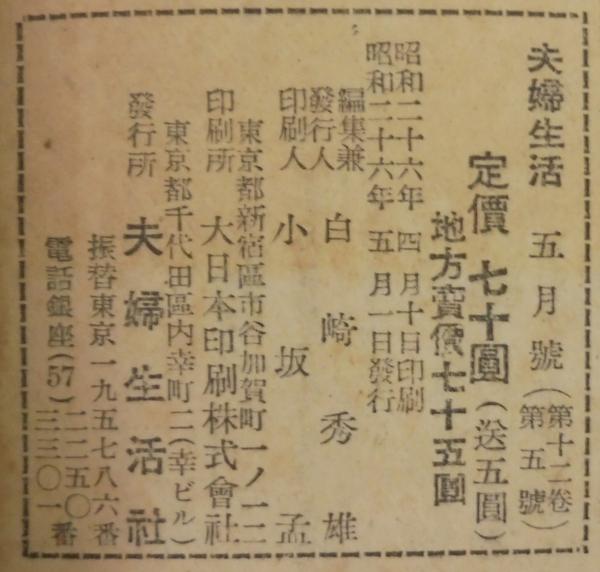 夫婦生活　五月號（第十二卷第五號）
定價　七十圓（送五圓）
地方賣價七十五圓
昭和二十六年　四月十日印刷
昭和二十六年　五月一日發行
編集兼發行人　白崎秀雄
印刷人　小坂孟
東京都新宿區市谷加賀町一ノ一二
印刷所　大日本印刷株式會社
東京都千代田區內幸町二（幸ビル）
發行所　夫婦生活社
振替東京一九五七八六番
電話銀座(57)二二五〇番
三三〇一番